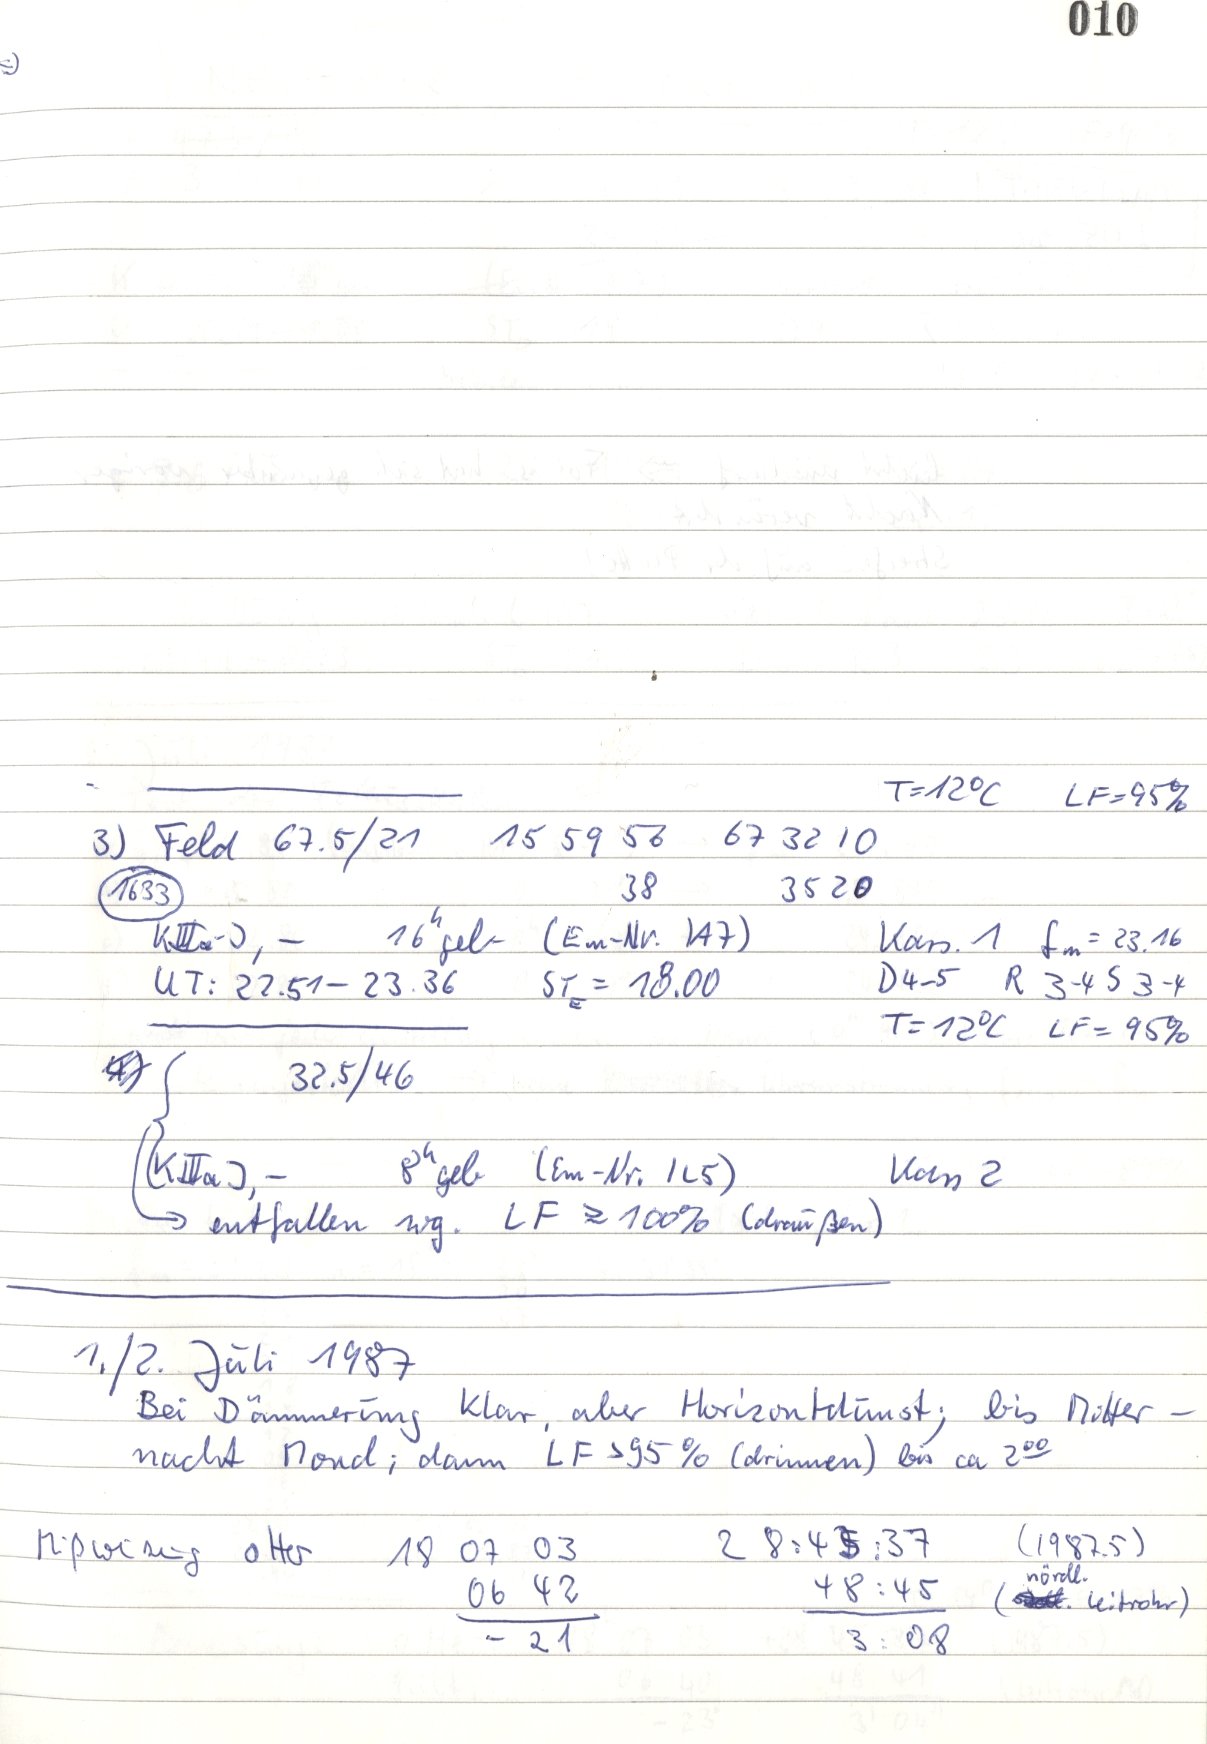 010
T=12°C LF=95%
3) Feld 67.5/21 15 59 56 67 32 10
1633 38 35 20
KIIIa-J, - 16ʰ geb (Em-Nr. 1A7) Kass. 1 fm = 23.16
UT: 22.51 - 23.36 STE = 18.00 D4-5 R 3-4 S 3-4
T=12°C LF=95%
32.5/46
(KIIIaJ, - 8ʰ geb (Em-Nr. 1L5) Kass 2
→ entfallen wg. LF ≳ 100% (draußen)
1./2. Juli 1987
Bei Dämmerung klar, aber Horizontdunst; bis Mitter-
nacht Mond; dann LF >95% (drinnen) bis ca 2⁰⁰
Mißweisung 18 07 03 28:45:37 (1987.5)
06 42 48:45 (nördl. Leitrohr)
- 21 3:08